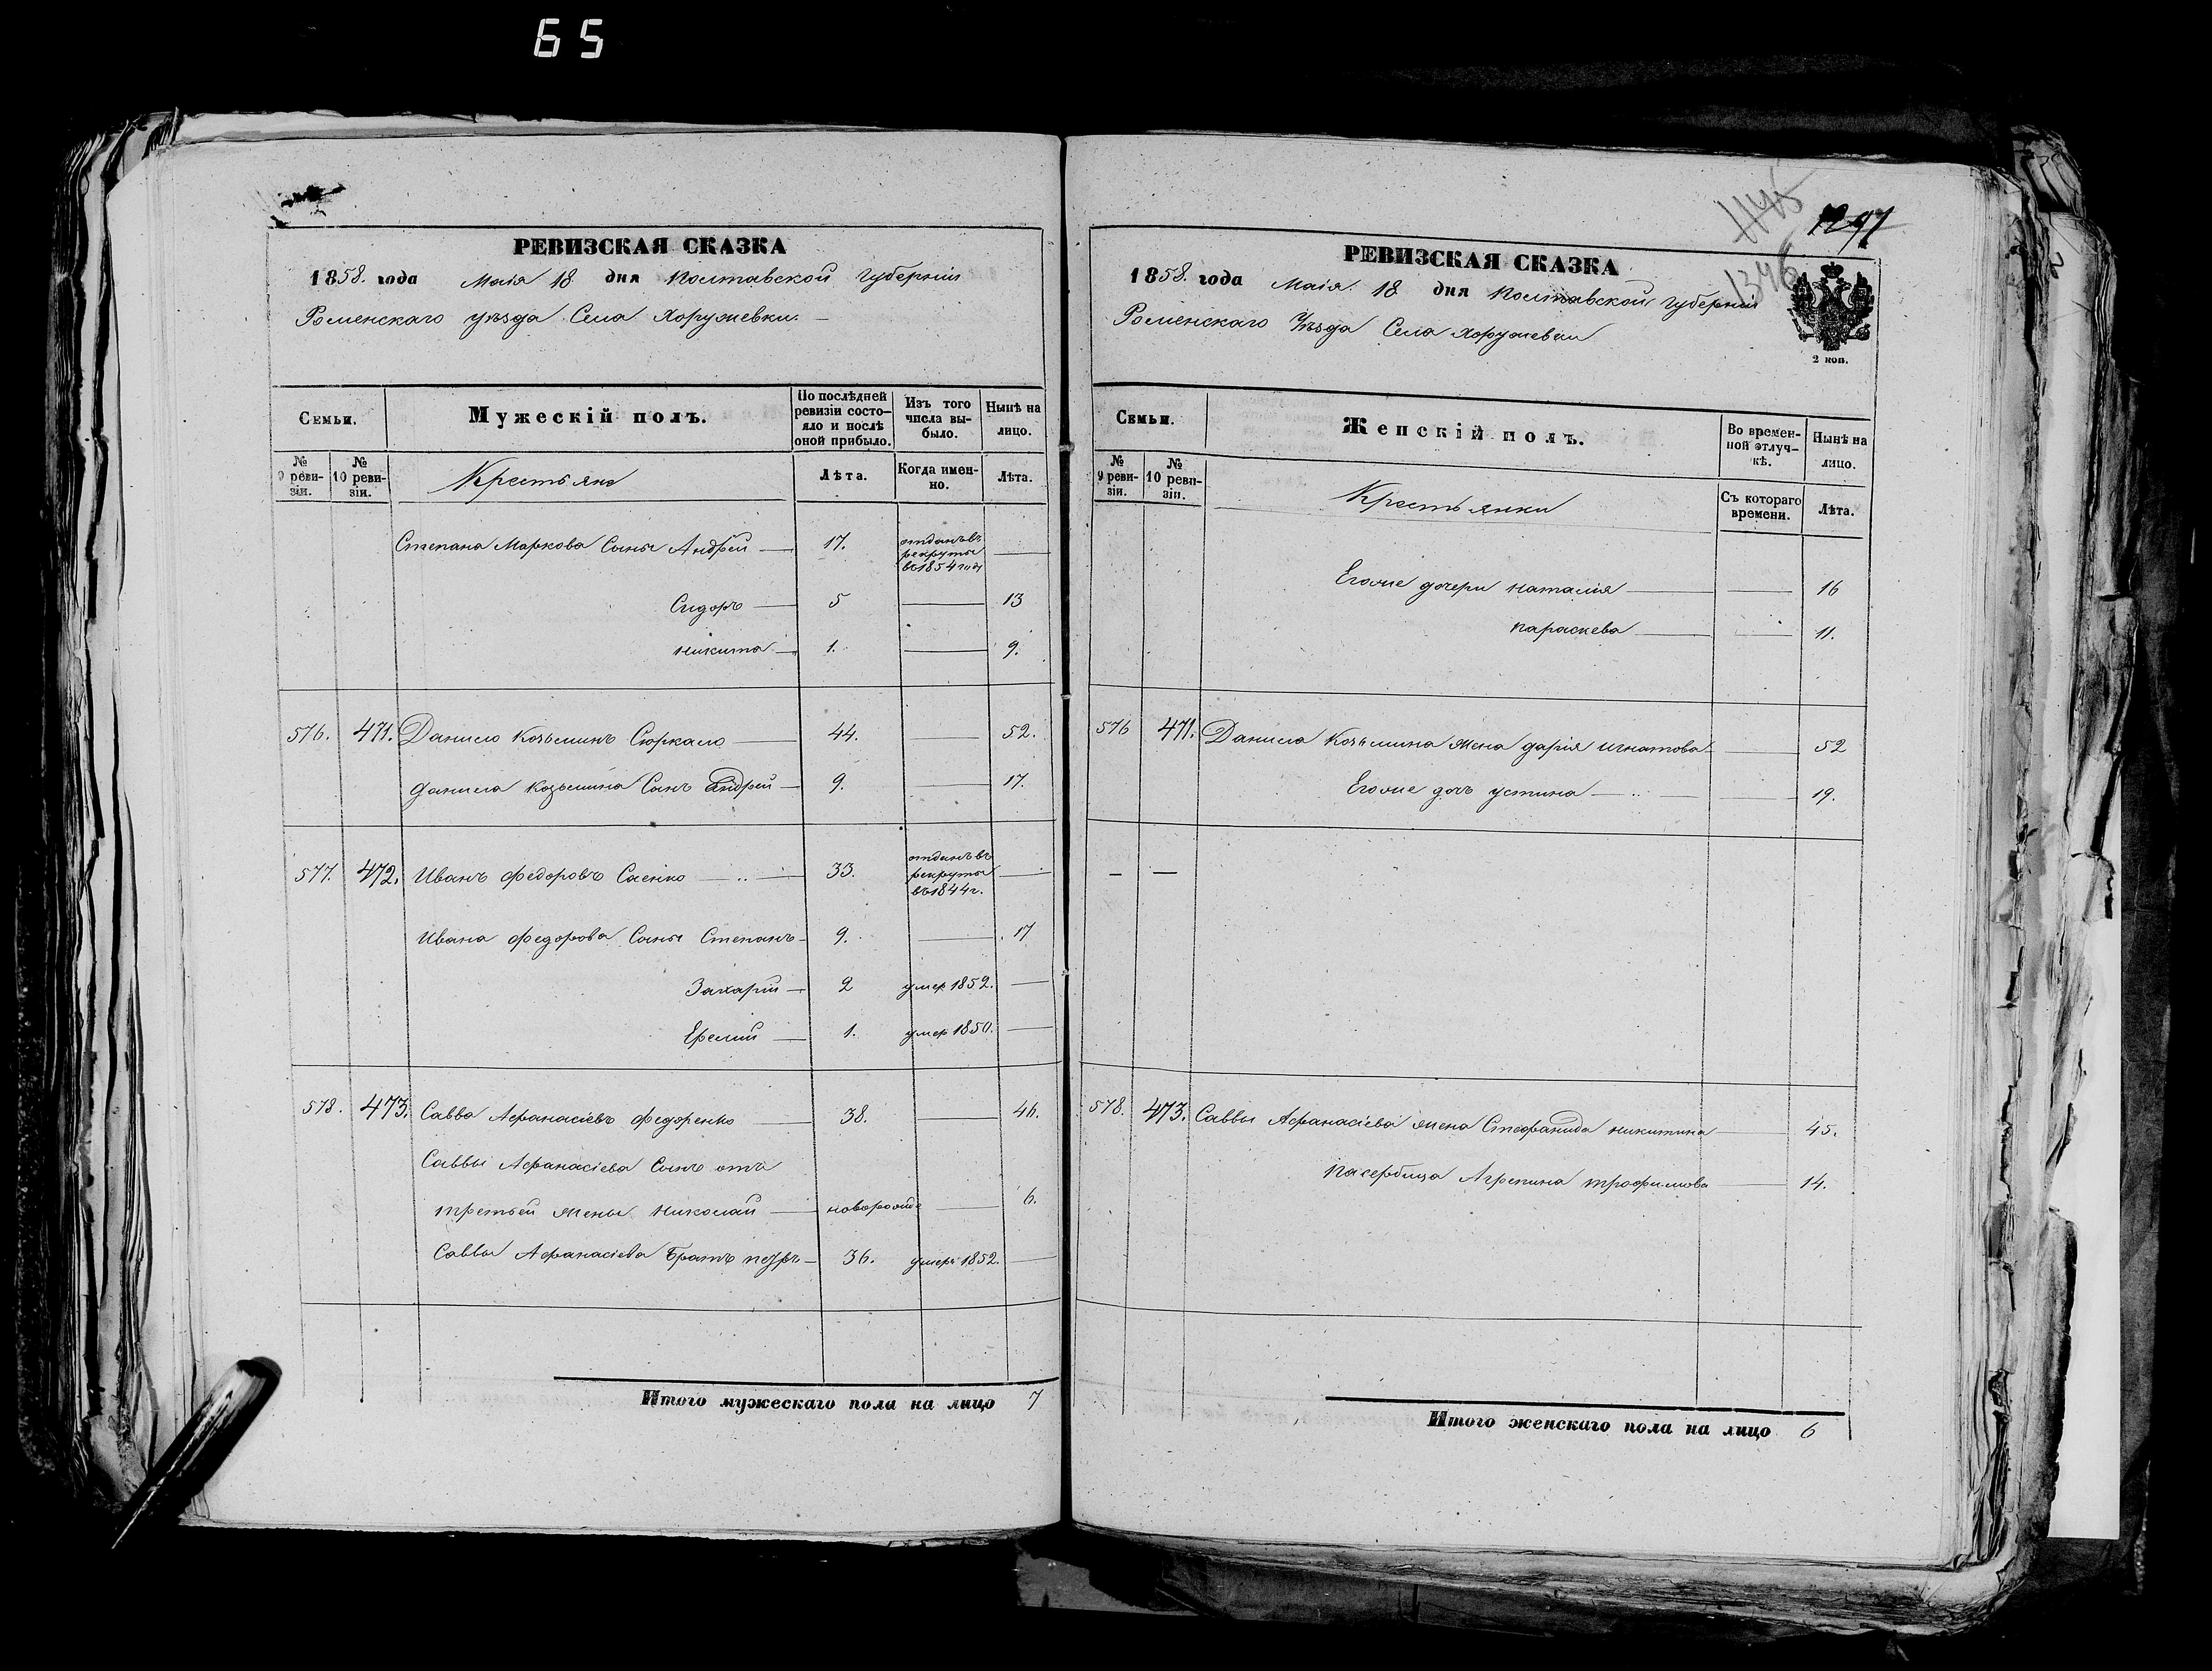 65
РЕВИЗСКАЯ СКАЗКА
1858. года Маія 18 дня Полтавской Губерніи
Роменскаго уѣзда Села Хоружевки.
Семьи.
Мужескій полъ.
По послѣдней ревизіи состояло и послѣ оной прибыло.
Изъ того числа выбыло.
Нынѣ на лицо.
№ 9 ревизіи.
№ 10 ревизіи.
Крестьяне
Лѣта.
Когда именно.
Лѣта.
Степана Маркова Сыны Андрей — 17. отданъ въ рекруты въ 1854 году —
Сидоръ — 5 — 13
Никита — 1. — 9.
576. 471. Данило Козьминъ Сюркало — 44. — 52.
Данила Козьмина Сынъ Андрей — 9. — 17.
577. 472. Иванъ Федоровъ Саенко — 33. отданъ въ рекруты въ 1844 г. —
Ивана Федорова Сыны Степанъ — 9. — 17
Захарій — 2 умер 1852. —
Еремій — 1. умер 1850. —
578. 473. Савва Афанасіевъ Федоренко — 38. — 46.
Саввы Афанасіева Сынъ отъ
третьей жены Николай — новорожде — 6.
Саввы Афанасіева Братъ Петръ — 36. умеръ 1852. —
Итого мужескаго пола на лицо 7
1145
1297
1346
РЕВИЗСКАЯ СКАЗКА
1858. года Маія 18 дня Полтавской Губерніи
Роменскаго Уѣзда Села Хоружевки
2 коп.
Семьи.
Женскій полъ.
Во временной отлучкѣ.
Нынѣ на лицо.
№ 9 ревизіи.
№ 10 ревизіи.
Крестьянки
Съ котораго времени.
Лѣта.
Егоже дочери Наталія — — 16
Параскева — — 11.
576 471. Данила Козьмина жена Дарія Игнатова — 52
Егоже дочь Устина — — 19.
— —
578. 473. Саввы Афанасіева жена Стефанида Никитина — 45.
Пасербица Агрепина Трофимова — 14.
Итого женскаго пола на лицо 6